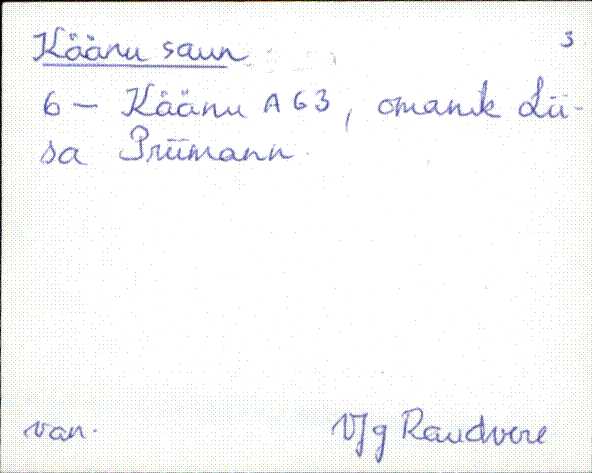 3
Käänu saun
6 — Käänu A63, omanik Lii-
sa Priimann.
van.
VJg Raudvere